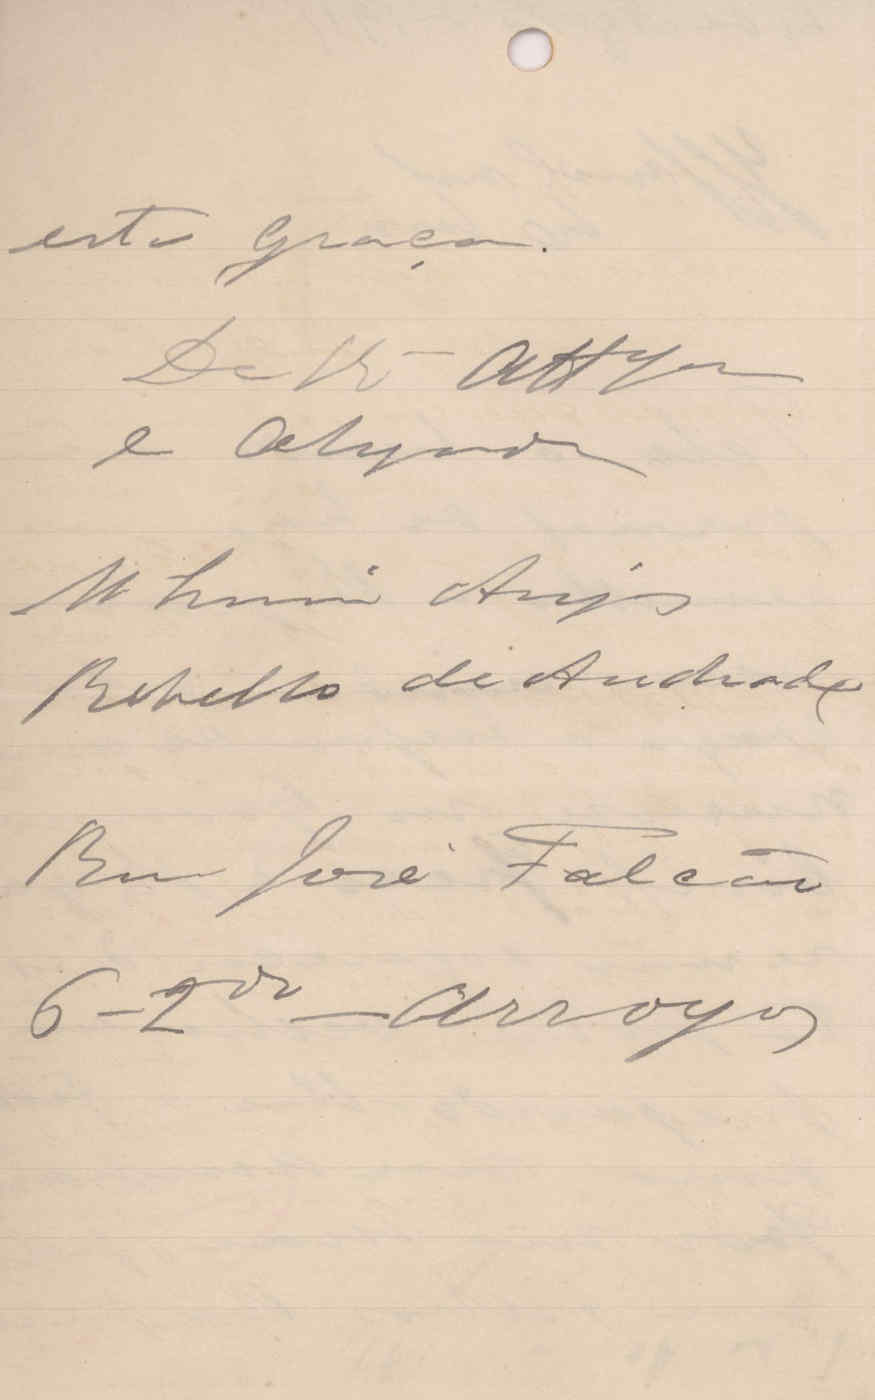 esta graça.
De V. Attª
e Obrgada
M Luiza Anjos
Rebello de Andrade
Rua José Falcão
6-2º D - Arroyos